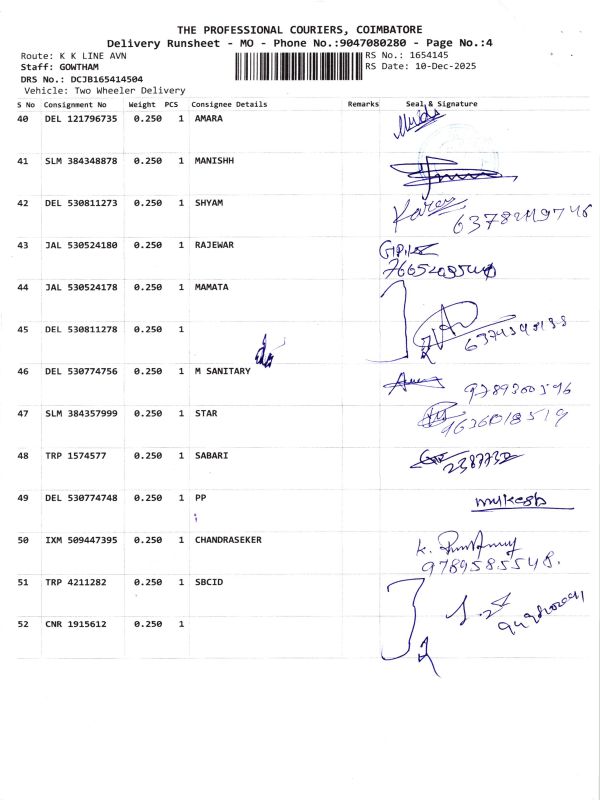 THE PROFESSIONAL COURIERS, COIMBATORE
Delivery Runsheet - MO - Phone No.:9047080280 - Page No.:4
Route: K K LINE AVN
RS No.: 1654145
Staff: GOWTHAM
RS Date: 10-Dec-2025
DRS No.: DCJB165414504
Vehicle: Two Wheeler Delivery
S No Consignment No Weight PCS Consignee Details Remarks Seal & Signature
40 DEL 121796735 0.250 1 AMARA
41 SLM 384348878 0.250 1 MANISHH
42 DEL 530811273 0.250 1 SHYAM
43 JAL 530524180 0.250 1 RAJEWAR
44 JAL 530524178 0.250 1 MAMATA
45 DEL 530811278 0.250 1
46 DEL 530774756 0.250 1 M SANITARY
9789300596
47 SLM 384357999 0.250 1 STAR
9636018519
48 TRP 1574577 0.250 1 SABARI
49 DEL 530774748 0.250 1 PP
mukesh
50 IXM 509447395 0.250 1 CHANDRASEKER
9789585548.
51 TRP 4211282 0.250 1 SBCID
52 CNR 1915612 0.250 1